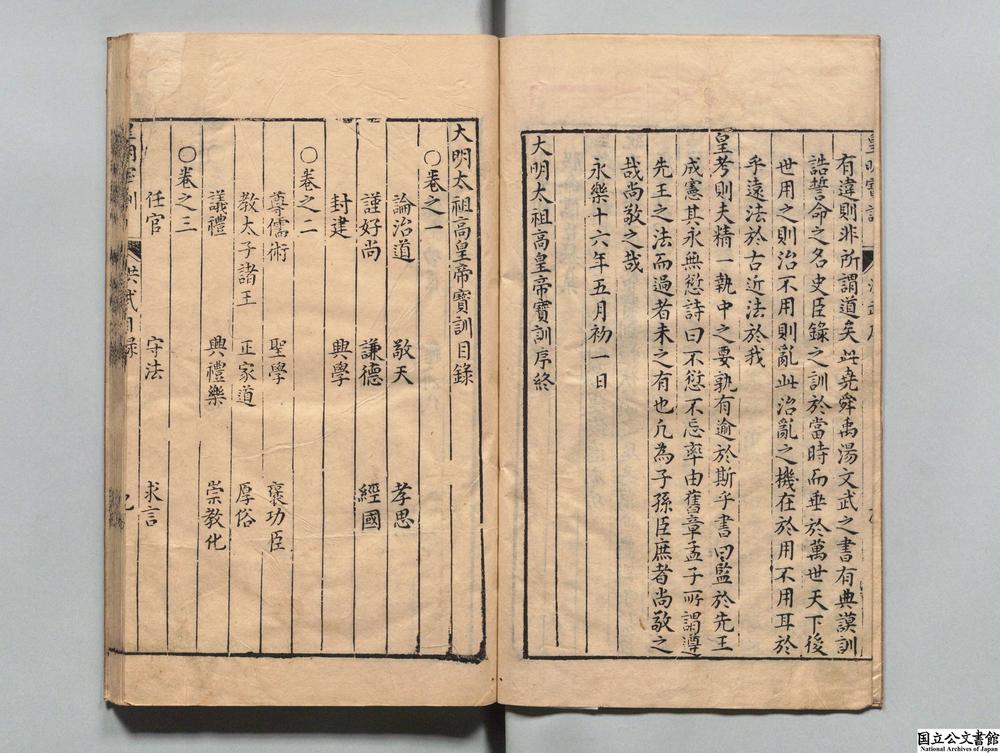 皇明寶訓
洪武序
有違則非所謂道矣此堯舜禹湯文武之書有典謨訓
誥誓命之名史臣錄之訓於當時而垂於萬世天下後
世用之則治不用則亂此治亂之機在於用不用耳於
乎遠法於古近法於我
皇考則夫精一執中之要孰有逾於斯乎書曰監於先王
成憲其永無愆詩曰不愆不忘率由舊章孟子所謂遵
先王之法而過者未之有也凡為子孫臣庶者尚敬之
哉尚敬之哉
永樂十六年五月初一日
大明太祖高皇帝寶訓序終
大明太祖高皇帝寶訓目錄
○卷之一
論治道 敬天 孝思
謹好尚 謙德 經國
封建 興學
○卷之二
尊儒術 聖學 褒功臣
教太子諸王 正家道 厚俗
議禮 興禮樂 崇教化
○卷之三
任官 守法 求言
皇明寶訓 洪武目錄
国立公文書館
National Archives of Japan